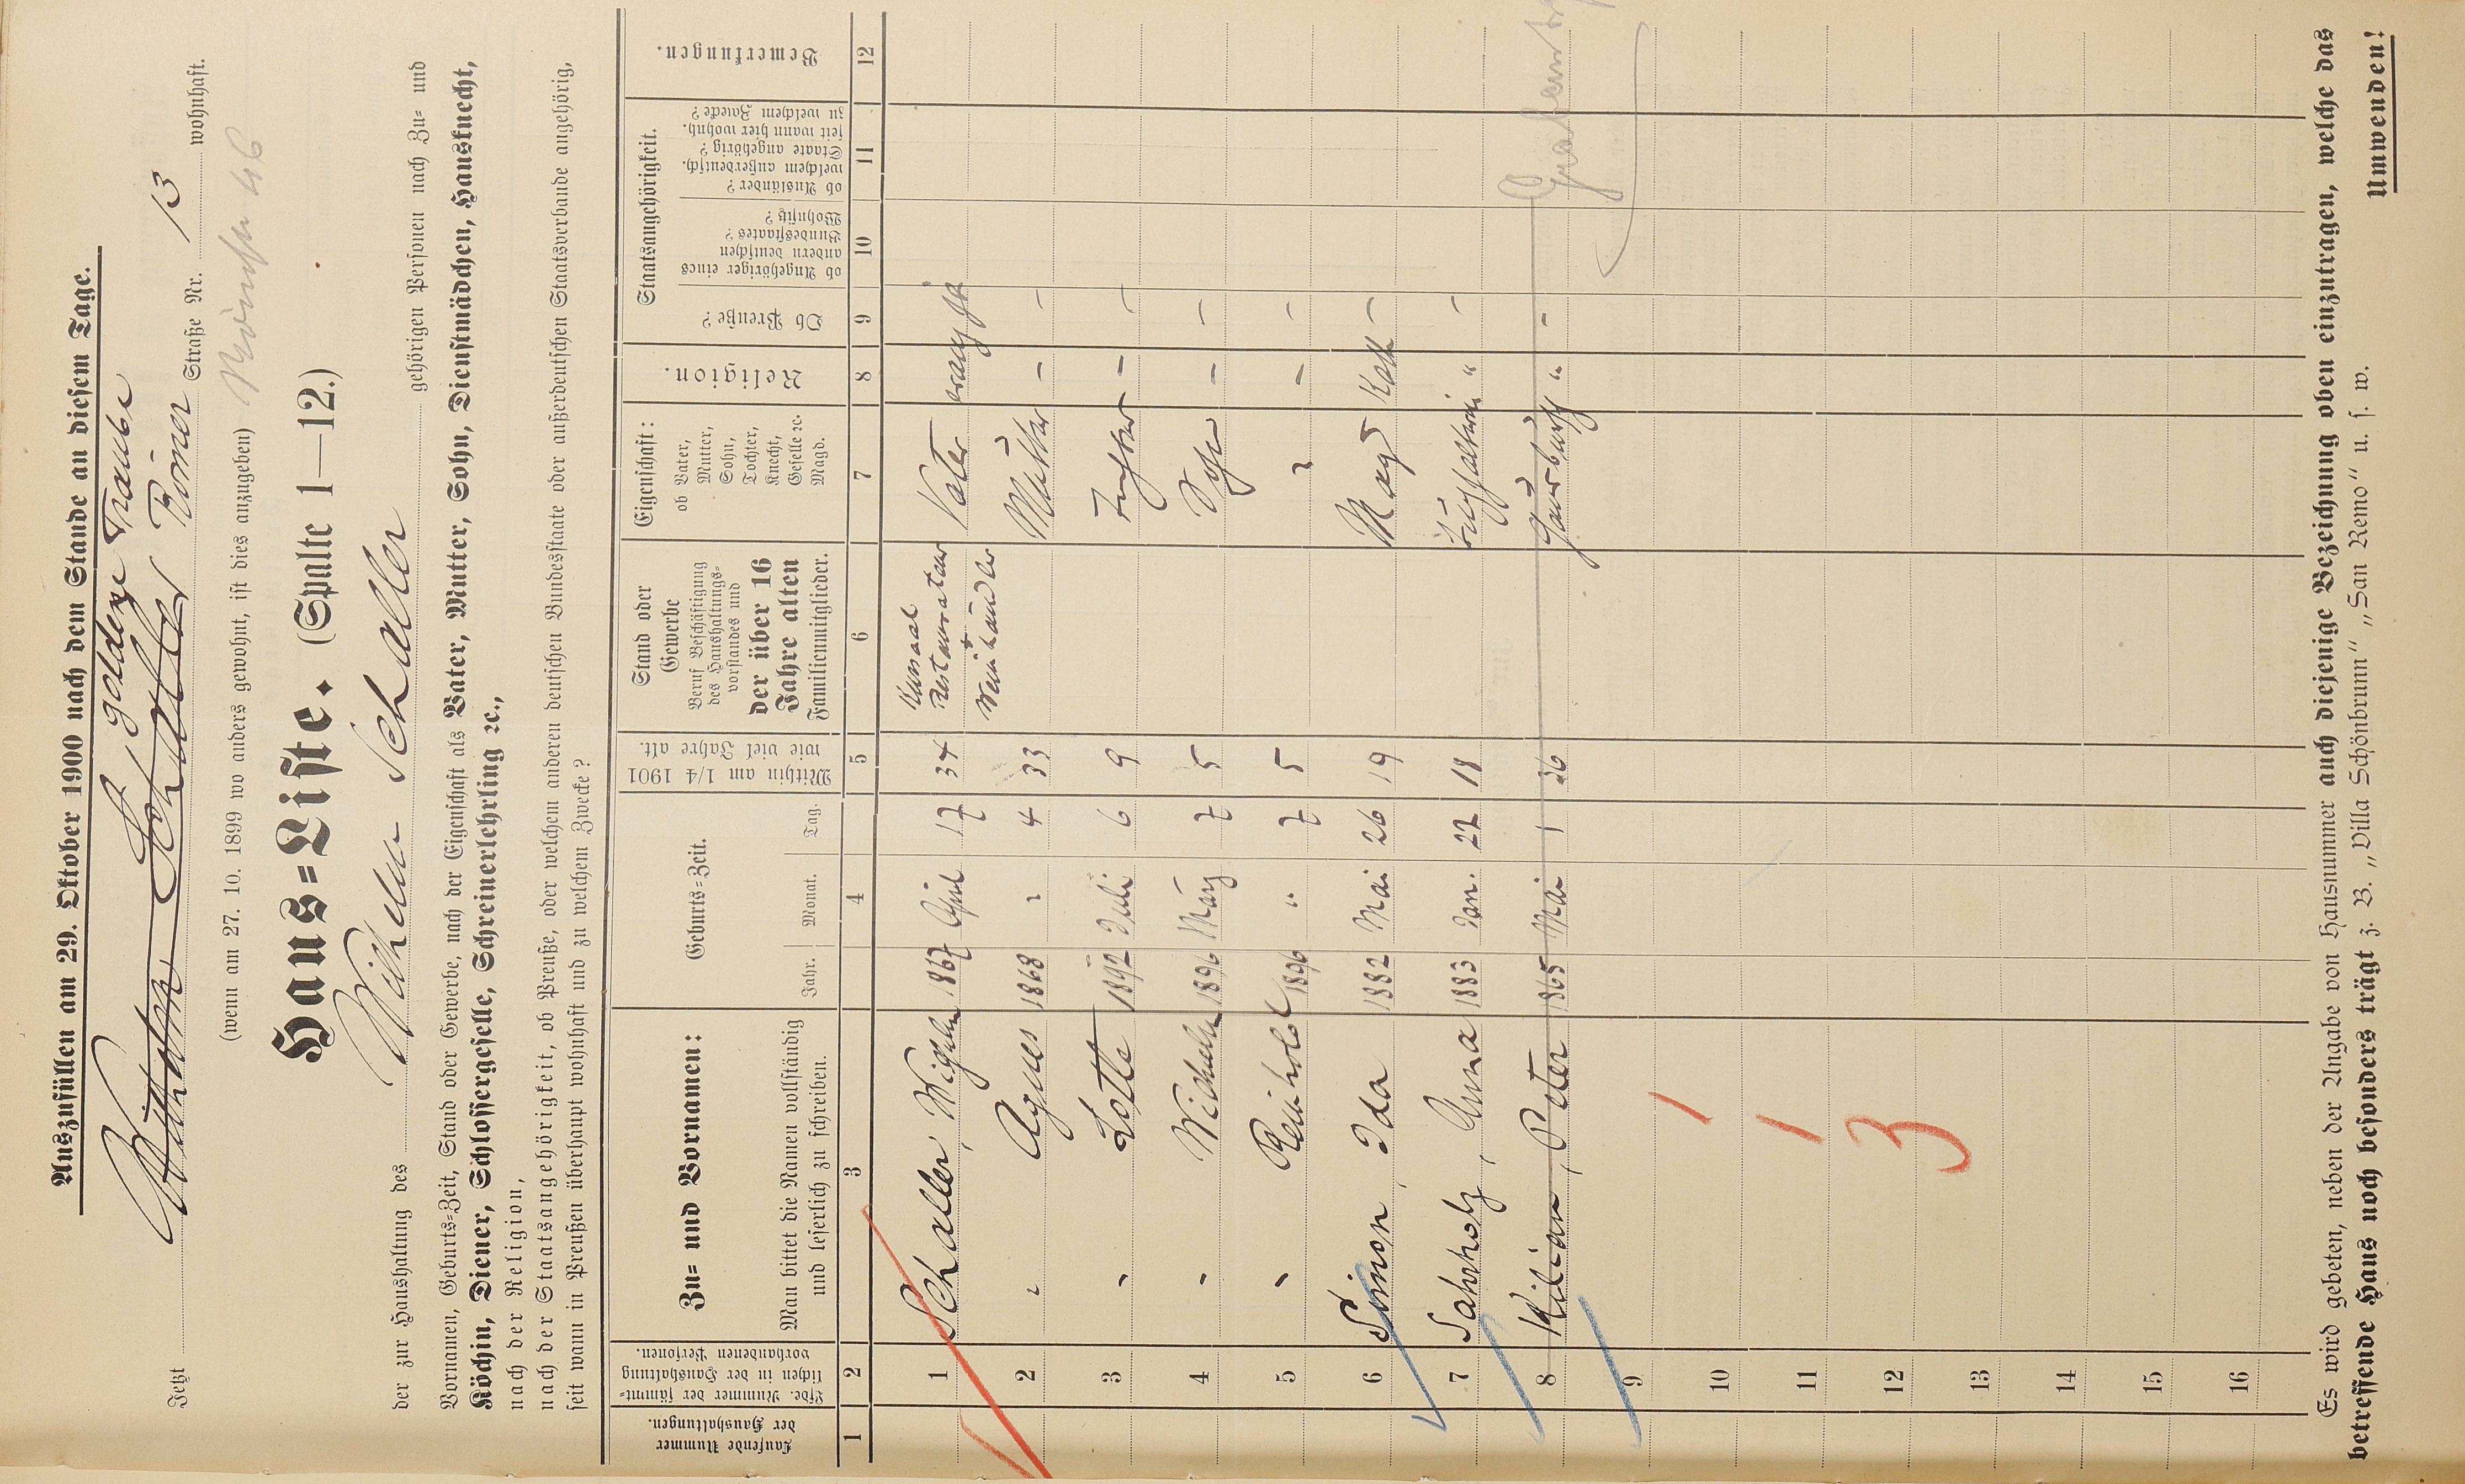 Auszufüllen am 29. Oktober 1900 nach dem Stande an diesem Tage.
goldene Traube
Jetzt Wilhelm Schaller Römer Straße Nr. 13 wohnhaft.
(wenn am 27. 10. 1899 wo anders gewohnt, ist dies anzugeben) 46
Haus=Liste. (Spalte 1—12.)
der zur Haushaltung des Wilhelm Schaller gehörigen Personen nach Zu= und
Vornamen, Geburts=Zeit, Stand oder Gewerbe, nach der Eigenschaft als Vater, Mutter, Sohn, Dienstmädchen, Hausknecht,
Köchin, Diener, Schlossergeselle, Schreinerlehrling ꝛc.,
nach der Religion,
nach der Staatsangehörigkeit, ob Preuße, oder welchem anderen deutschen Bundesstaate oder außerdeutschen Staatsverbande angehörig,
seit wann in Preußen überhaupt wohnhaft und zu welchem Zwecke?
Laufende Nummer der Haushaltungen.
Lfde. Nummer der sämmt=lichen in der Haushaltung vorhandenen Personen.
Zu= und Vornamen:
Man bittet die Namen vollständig
und leserlich zu schreiben.
Geburts=Zeit.
Jahr. Monat. Tag.
Mithin am 1/4 1901
wie viel Jahre alt.
Stand oder
Gewerbe
Beruf Beschäftigung
des Haushaltungs=
vorstandes und
der über 16
Jahre alten
Familienmitglieder.
Eigenschaft:
ob Vater,
Mutter,
Sohn,
Tochter,
Knecht,
Geselle ꝛc.
Magd.
Religion.
Staatsangehörigkeit.
Ob Preuße?
ob Angehöriger eines
andern deutschen
Bundesstaates
Wohnsitz?
ob Ausländer?
welchem außerdeutsch.
Staate angehörig?
seit wann hier wohnh.
zu welchem Zwecke?
Bemerkungen.
1 2 3 4 5 6 7 8 9 10 11 12
1 Schaller, Wilhelm 1867 April 17 34 Kursaal Restaurateur + Weinhändler Vater evang ja
2 " Agnes 1868 " 4 33 Mutter – –
3 " Lotte 1892 Juli 6 9 Tochter – –
4 " Wilhelm 1896 März 7 5 Sohn – –
5 " Reinhold 1896 " 7 5 " – –
6 Simon, Ida 1882 Mai 26 19 Magd Kath –
7 Sahrholz, Anna 1883 Jan. 27 18 " –
8 Kilian, Peter 1865 Mai 1 36 Hausbursch " –
9
10
11
12
13
14
15
16
3
Es wird gebeten, neben der Angabe von Hausnummer auch diejenige Bezeichnung oben einzutragen, welche das
betreffende Haus noch besonders trägt z. B. „Villa Schönbrunn“ „San Remo“ u. s. w.
Umwenden!